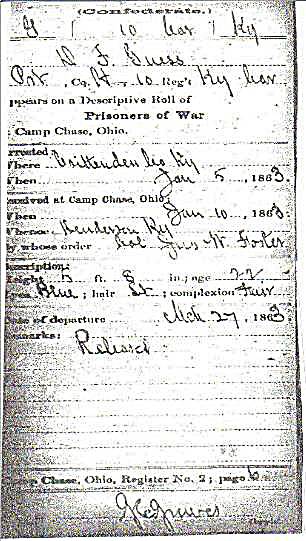 (Confederate.)
G 10 Cav Ky
D. F. Guess
Pvt., Co. H, 10 Reg't Ky Cav
ppears on a Descriptive Roll of
Prisoners of War
Camp Chase, Ohio.
rrested:
Where Crittenden Co Ky
When Jan 5, 1863.
eceived at Camp Chase, Ohio
When Jan 10, 1863
Whence: Henderson Ky
y whose order Col. Jno W. Foster
escription:
eight 5 ft. 8 in; age 22
Blue; hair Lt.; complexion Fair
ate of departure Mch 27, 1863
emarks: Released
p Chase, Ohio, Register No. 2; page 6